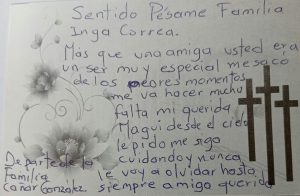 Sentido Pésame Familia
Inga Correa.
Más que una amiga usted era
un ser muy especial me saco
de los peores momentos
me va hacer mucho
falta mi querida
Magui desde el cielo
le pido me siga
cuidando y nunca
le voy a olvidar hasta
siempre amiga querida
De parte de la
Familia
Cañar Gonzalez